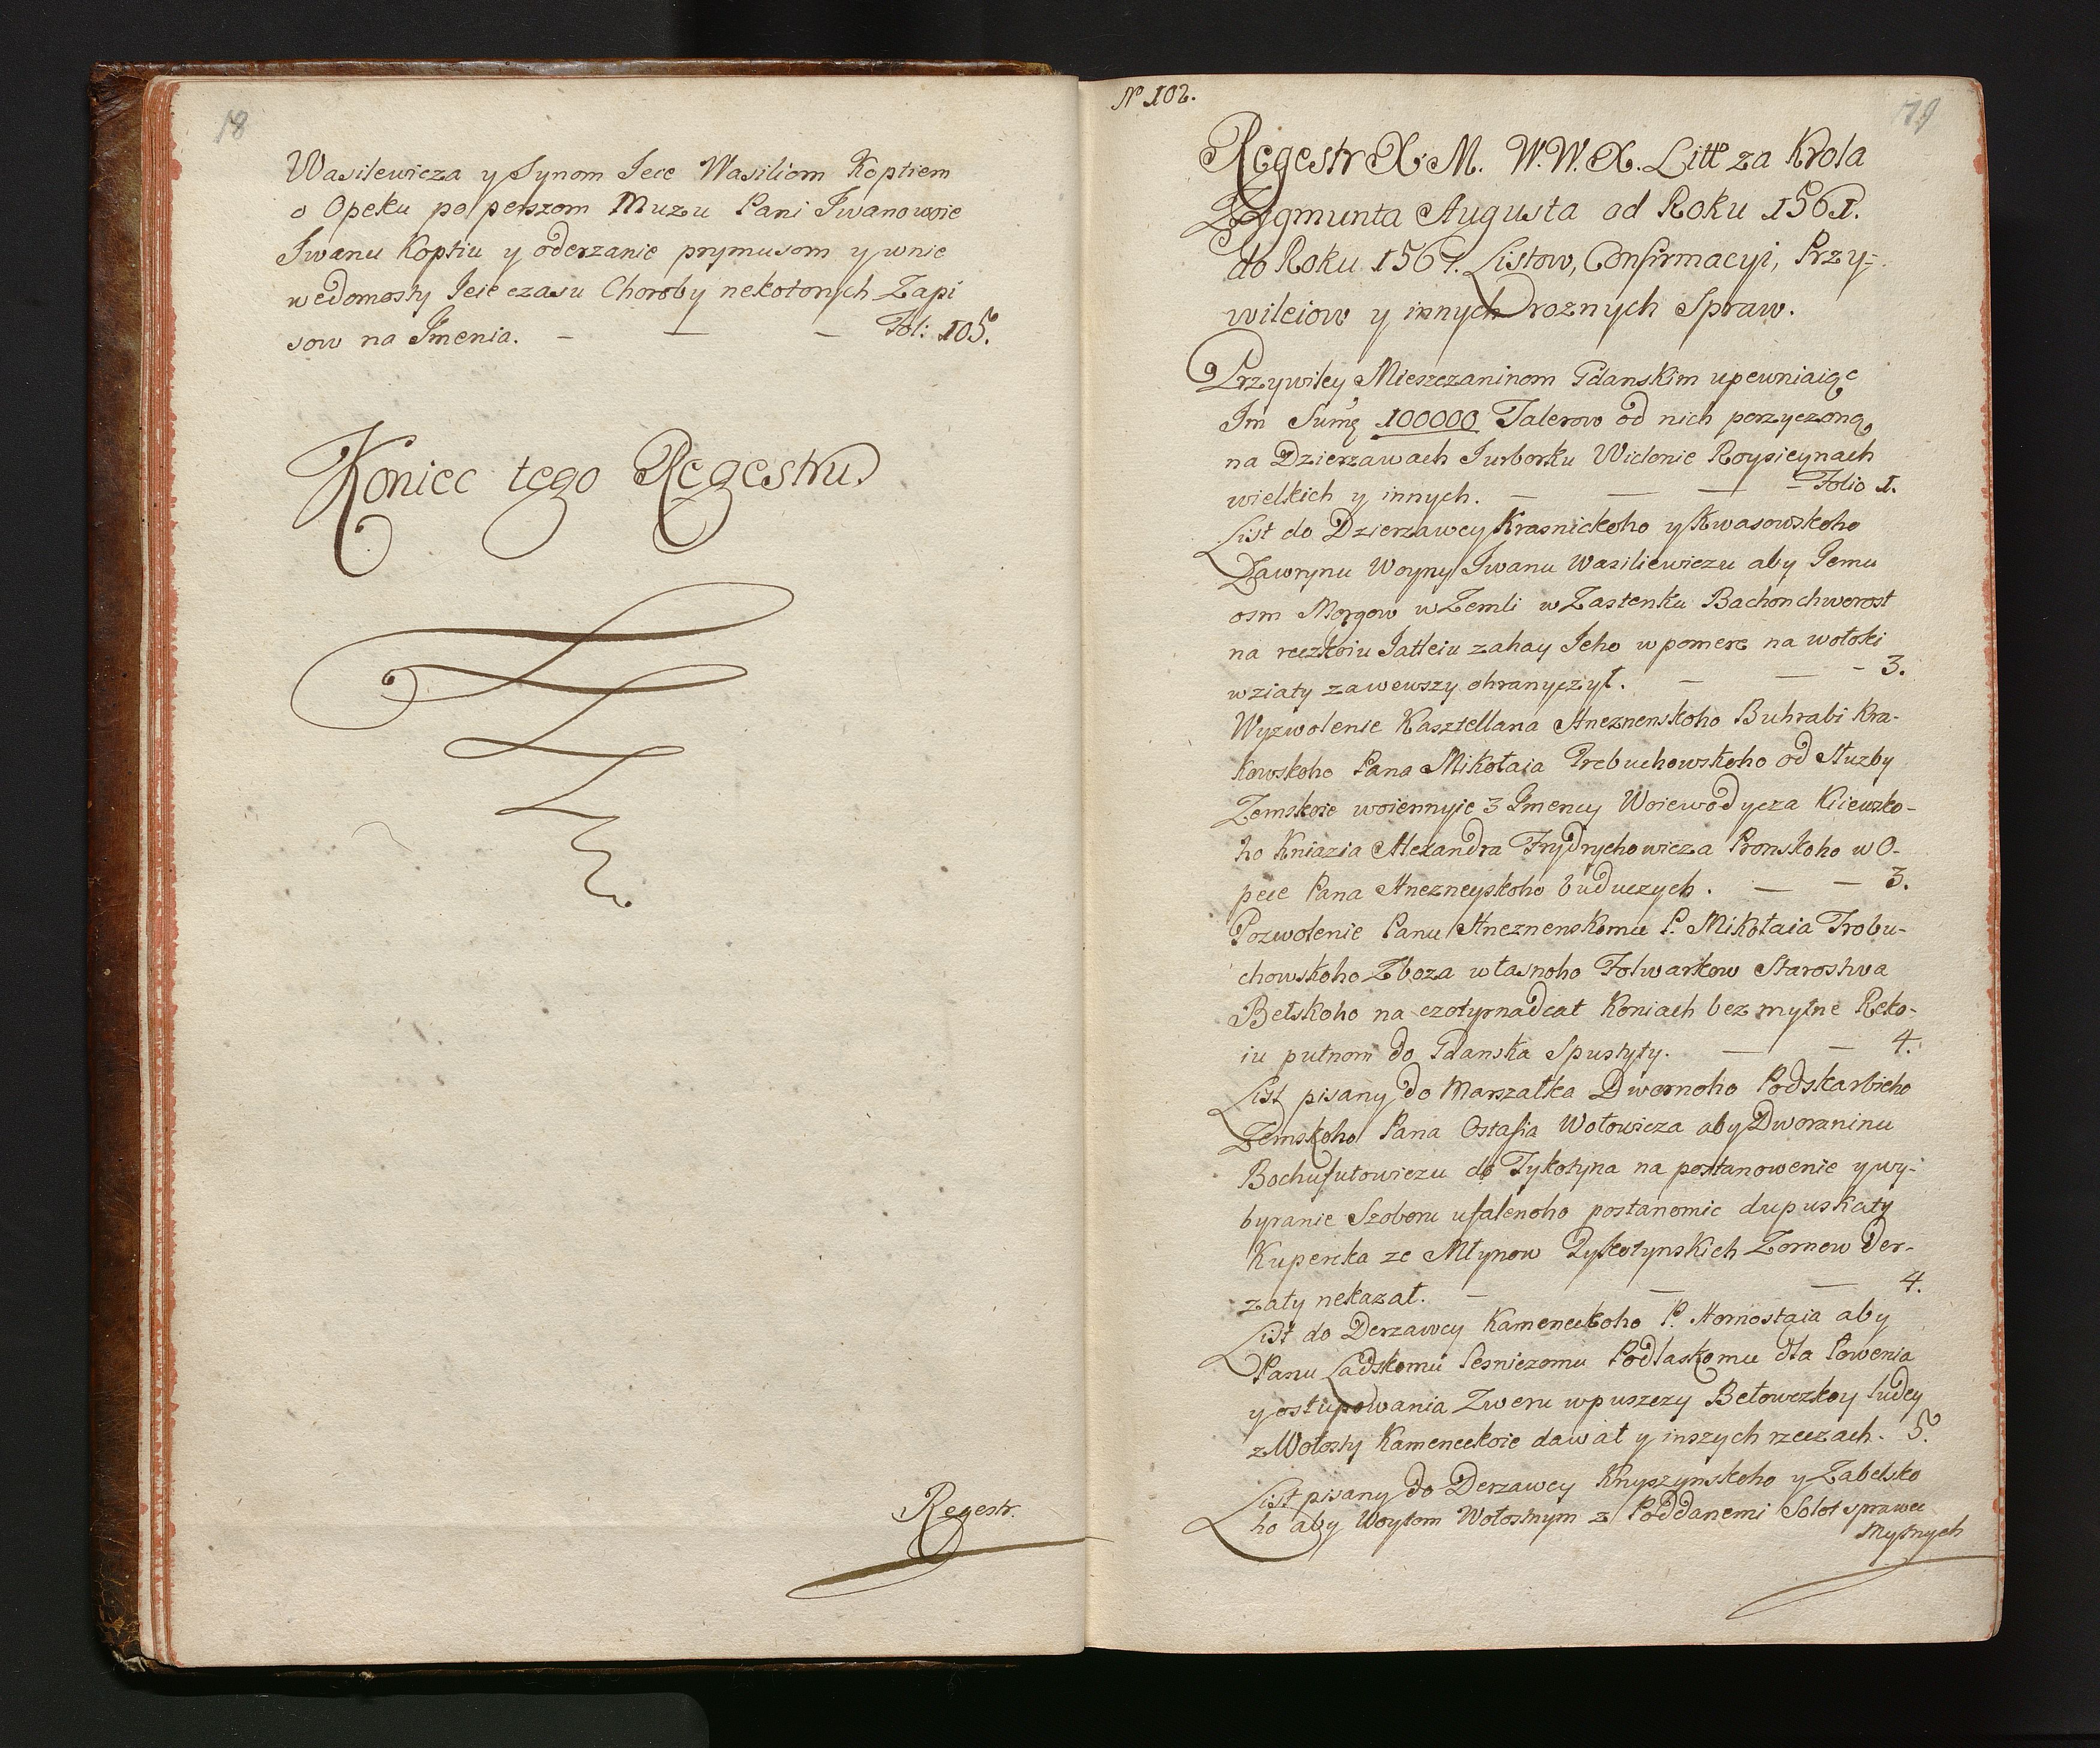 18
Wasilewicza y Synom Jeie Wasiliom Koptiem
o Opeku po perszom Muzu Pani Iwanowoie
Iwanu Koptiu y oderzanie prymusom y wnie
wedomosty Jeie czasu Choroby nekotorych Zapi
sow na Jmenia. — — — Fol: 105.
Koniec tego Regestru
Regestr.
No 102.
19
Regestr X. M. W. W. X. Litt za Krola
Zygmunta Augusta od Roku 1561.
do Roku 1567. Listow, Confirmacyi, Przy=
wileiow y innych roznych Spraw.
Przywiley Mieszczaninom Gdanskim upewniaiąc
Im Sumę 100000 Talerow od nich porzyczoną
na Dzierzawach Jurborku Wielonie Roysieynach
wielkich y innych. — — — Folio 1.
List do Dzierzawcy Krasnickoho y Kwasowskoho
Ławrynu Woyny Iwanu Wasiliewiczu aby Jemu
osm Morgow w Zemli w Zastenku Bachonchworost
na reczkoiu Jatleiu zahay Jeho w pomere na wołoki
wziaty zawewszy ohranyczył. — — 3.
Wyzwolenie Kasztellana Hneznenskoho Buhrabi Kra-
kowskoho Pana Mikołaia Trebuchowskoho od Służby
Zemskoie woiennyie 3 Jmency Woiewodycza Kiiewsko-
ho Kniazia Alexandra Frydrychowicza Pronskoho w O-
pece Pana Hnezneyskoho buduczych. — — 3.
Pozwolenie Panu Hneznenskomu P. Mikołaia Trobu-
chowskoho Zboza własnoho Folwarkow Starostwa
Bełskoho na czotyrnadcat Koniach bez mytne Reko-
iu putnom do Gdanska Spustyty. — — 4.
List pisany do Marszałka Dwornoho Podskarbieho
Zemskoho Pana Ostafia Wołowicza aby Dworaninu
Bochufutowiczu do Tykotyna na postanowenie y wy-
byranie Szoboru ufalenoho postanomic dupuskaty
Kupercka ze Młynow Tykotynskich Zornow der-
zaty nekazat. — — — 4.
List do Derzawcy Kameneckoho P. Hornostaia aby
Panu Ladskomu Lesniczomu Podlaskomu dla Łowenia
y ostupowania Zweru w puszczy Bełowezkoy ludey
z Wołosty Kameneckoie dawał y inszych rzeczach. 5.
List pisany do Derzawcy Knyszynskoho y Zabelsko
ho aby Woytom Wołostnym z Poddanemi Solot sprawee
Mytnych